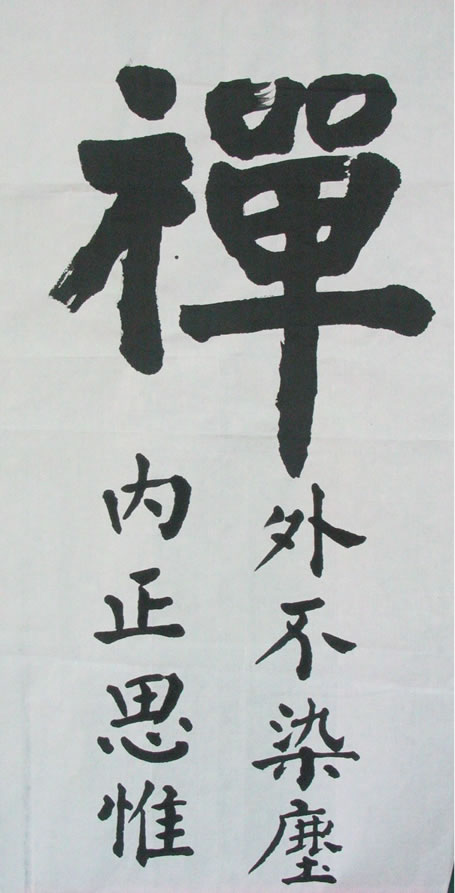 禪
外不染塵
内正思惟